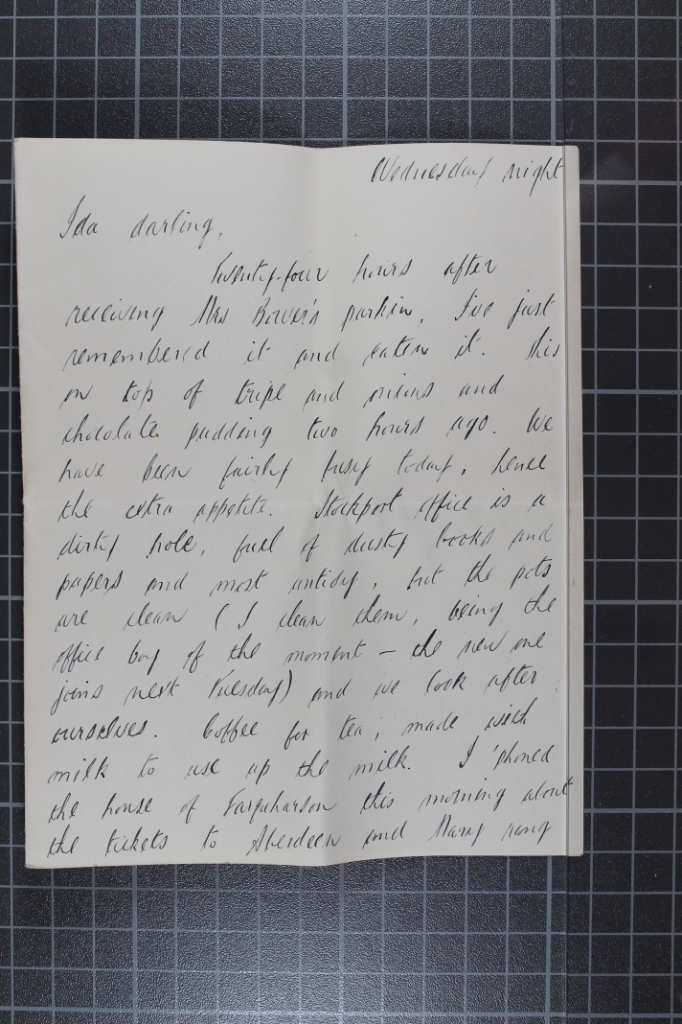 Wednesday night
Ida darling,
Twenty-four hours after
receiving Mrs Bower's parkin, I've just
remembered it and eaten it. This
on top of tripe and onions and
chocolate pudding two hours ago. We
have been fairly busy today, hence
the extra appetite. Stockport office is a
dirty hole, full of dusty books and
papers and most untidy, but the pots
are clean (I clean them, being the
office boy of the moment – the new one
joins next Tuesday) and we look after
ourselves. Coffee for tea, made with
milk to use up the milk. I 'phoned
the house of Farquharson this morning about
the tickets to Aberdeen and Mary rang